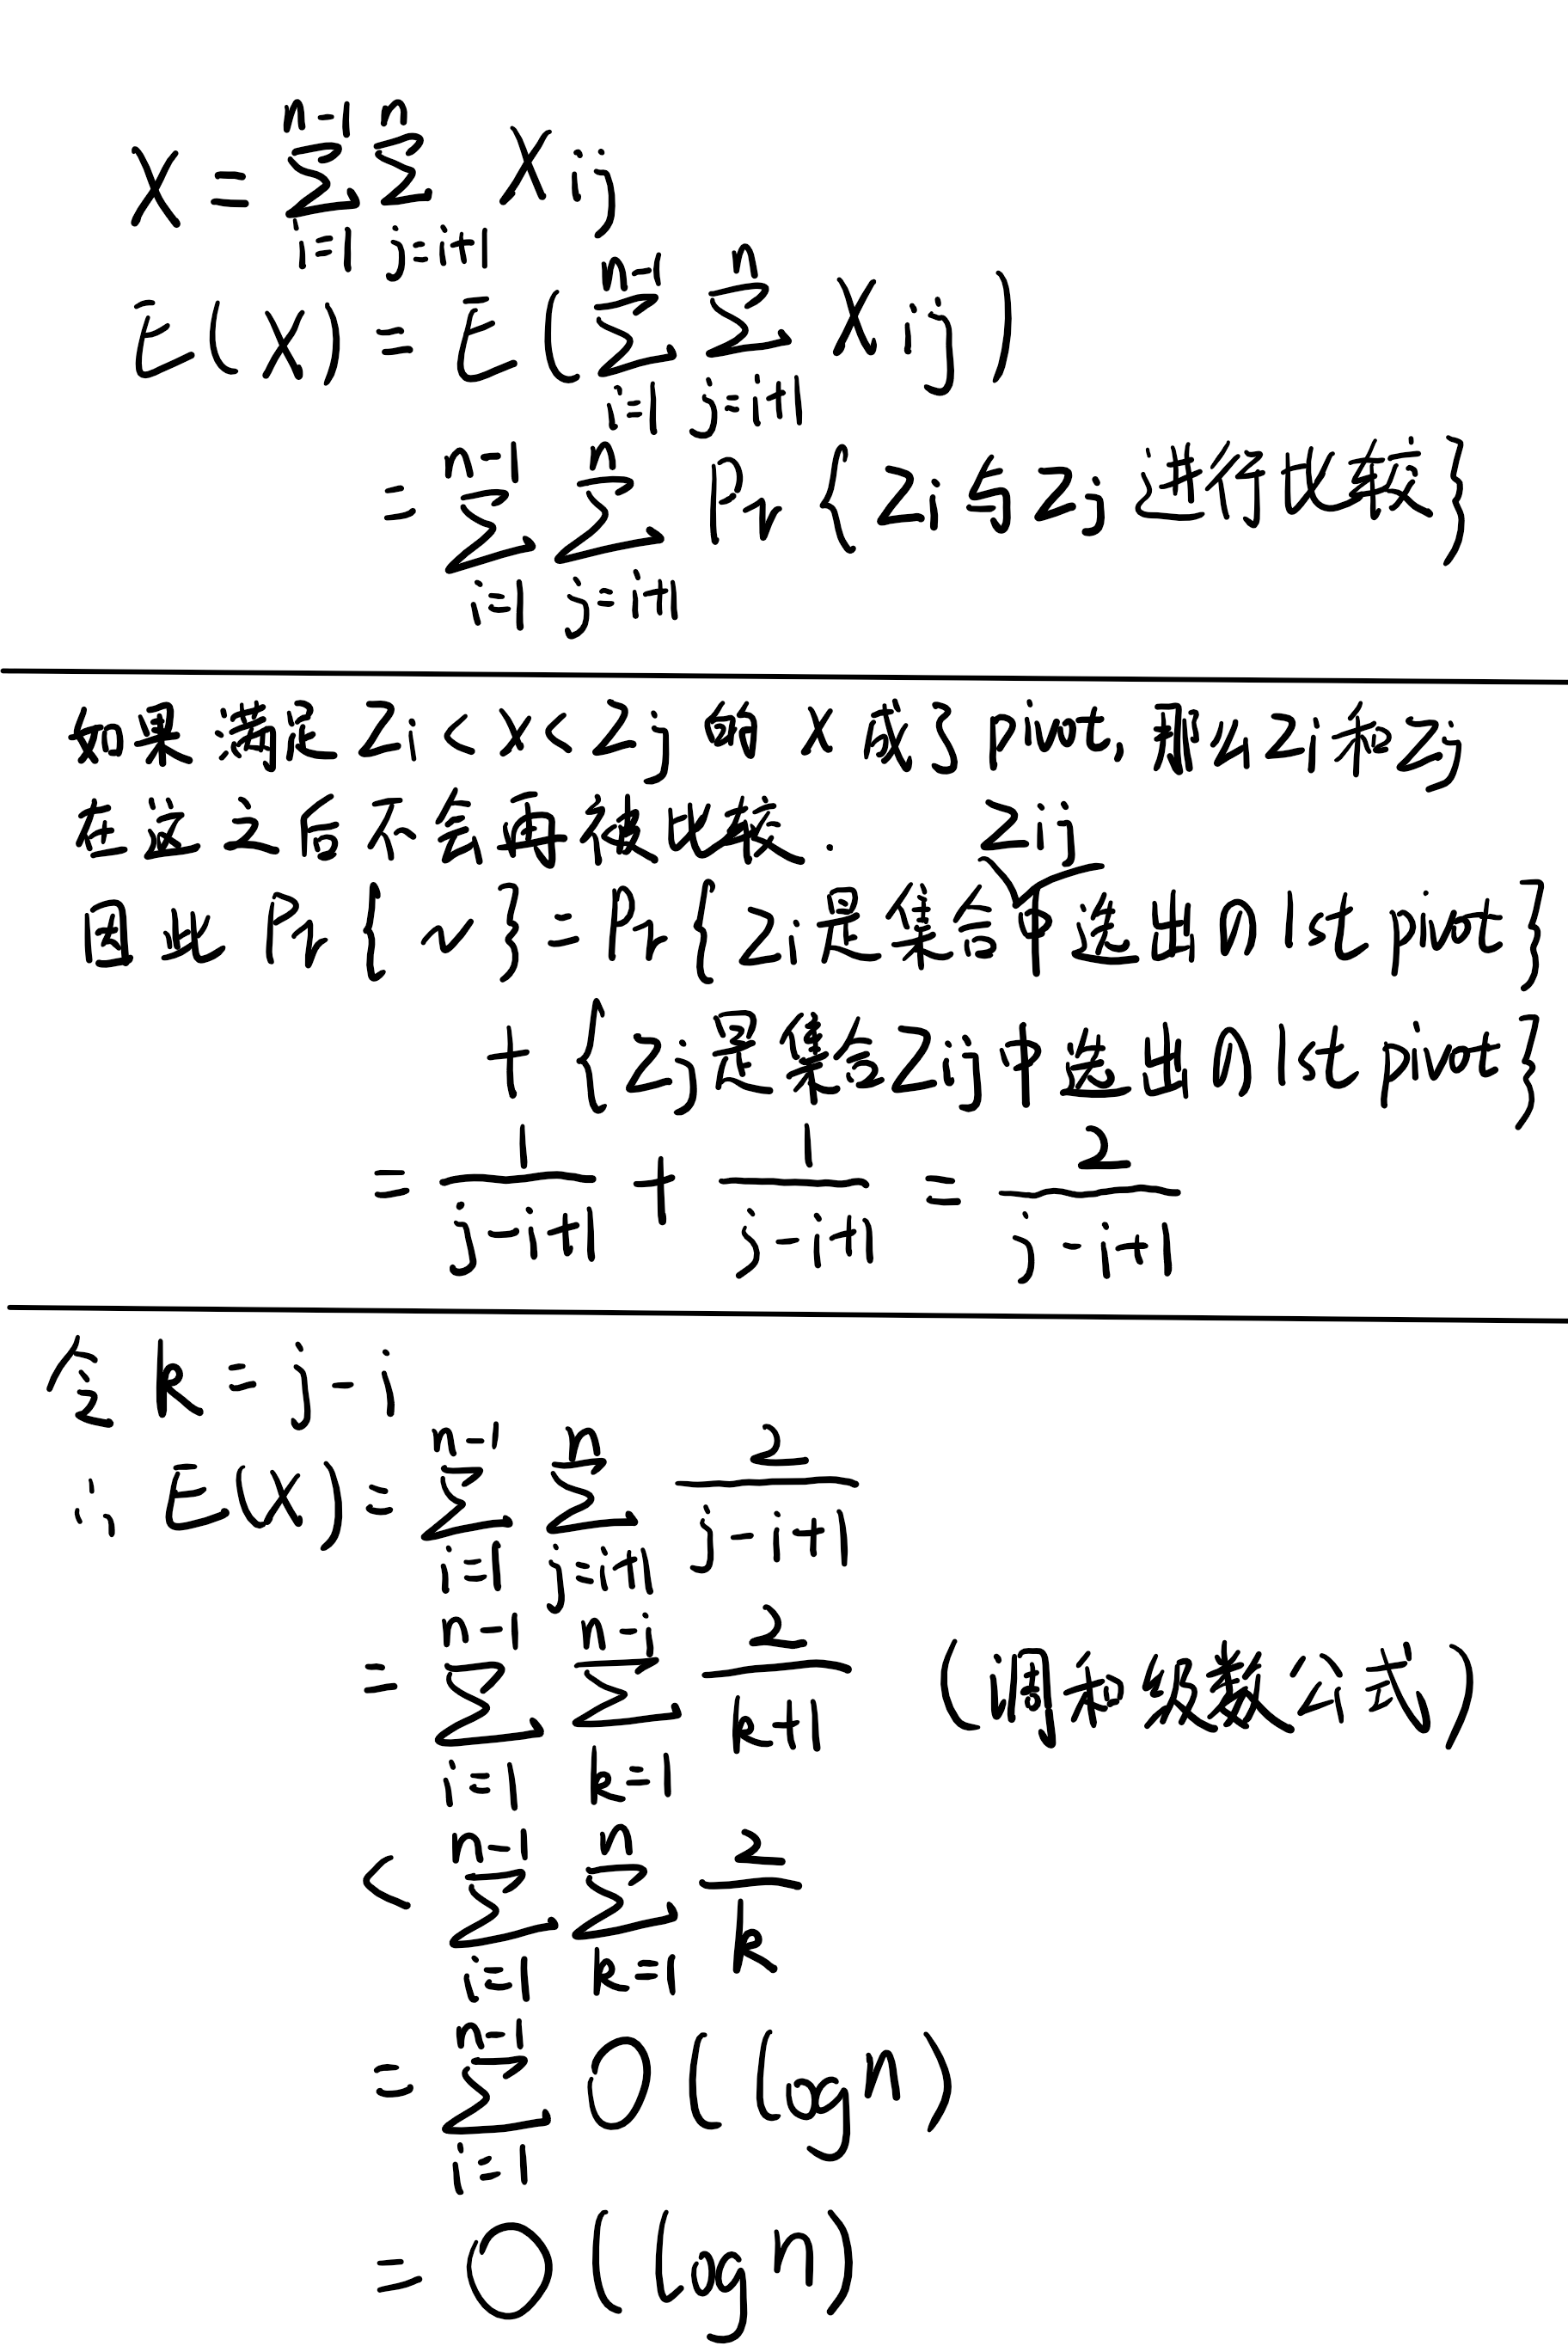 X = \sum_{i=1}^{n-1} \sum_{j=i+1}^{n} X_{ij}
E(X) = E(\sum_{i=1}^{n-1} \sum_{j=i+1}^{n} X_{ij})
= \sum_{i=1}^{n-1} \sum_{j=i+1}^{n} Pr { Zi 与 Zj 进行比较 }
如果满足 Zi < X < Zj 的 X 成了 pivot, 那么 Zi 和 Zj
在这之后不会再被比较.
因此 Pr { ~ } = Pr { Zi是集合 Zij 中选出的 1st pivot }
+ { Zj是集合Zij中选出的1st pivot }
= \frac{1}{j-i+1} + \frac{1}{j-i+1} = \frac{2}{j-i+1}
令 k = j - i
∴ E(X) = \sum_{i=1}^{n-1} \sum_{j=i+1}^{n} \frac{2}{j-i+1}
= \sum_{i=1}^{n-1} \sum_{k=1}^{n-i} \frac{2}{k+1} (调和级数公式)
< \sum_{i=1}^{n-1} \sum_{k=1}^{n} \frac{2}{k}
= \sum_{i=1}^{n-1} O(logn)
= O(logn)